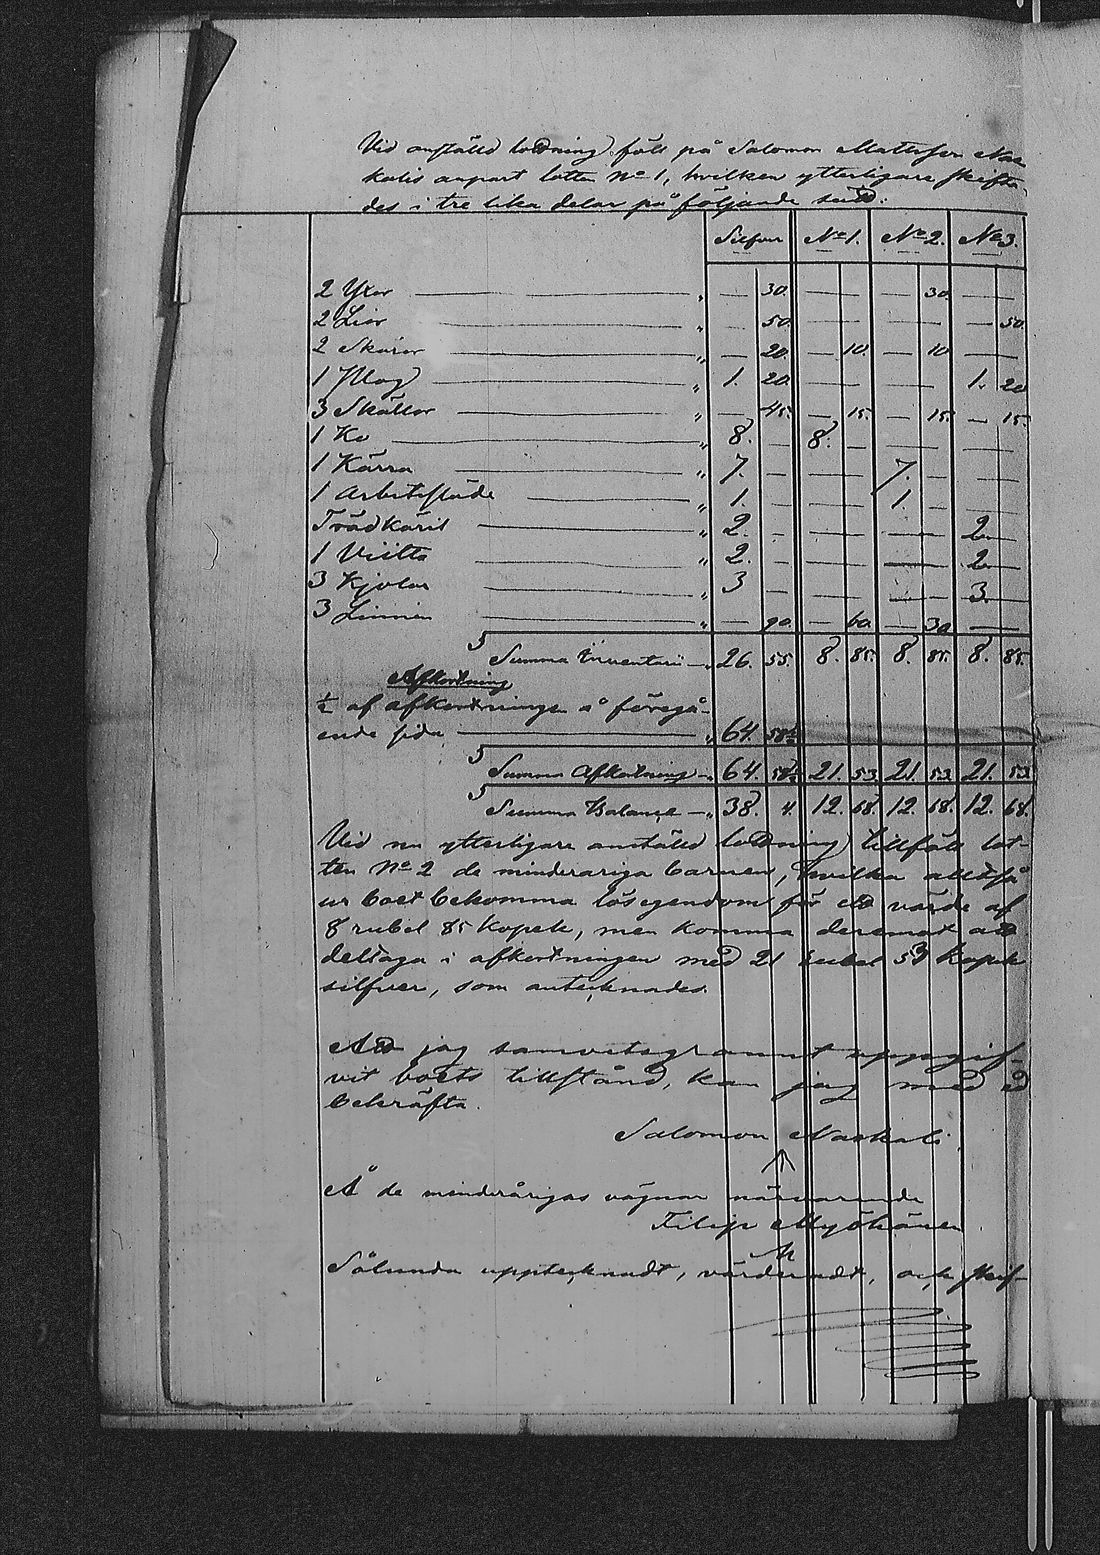 Vid anställd lottning föll på Salomon Mattsson Nas-
kalis anpart lotten No 1, hvilken ytterligare skifta-
des i tre lika delar på följande sätt:
Silfver No 1. No 2. No 3.
2 Yxor " — 30. — — — 30. — —
2 Liar " — 50. — — — — — 50.
2 Skäror " — 20. — 10. — 10. — —
1 Plog " 1. 20. — — — — 1. 20
3 Skällor " — 45. — 15. — 15. — 15.
1 Ko " 8. — 8. — — — — —
1 Kärra " 7. — — — 7. — — —
1 Arbetssläde " 1. — — — 1. — — —
Trädkäril " 2. — — — — — 2. —
1 Viitta " 2. — — — — — 2. —
3 Kjolar " 3 — — — — — 3. —
3 Linnen " — 90. — 60. — 30. — —
S
Summa Inventarii — " 26. 55. 8. 85. 8. 85. 8. 85.
Afkortning
½ af afkortningen å föregå-
ende sida " 64. 58½
S
Summa Afkortning — " 64. 58½ 21. 53. 21. 53. 21. 53
S
Summa Balance — " 38. 4. 12. 68. 12. 68. 12. 68.
Vid nu ytterligare anställd lottning tillföll lot-
ten No 2 de minderariga barnen, hvilka alltså
ur boet bekomma lös egendom för ett värde af
8 rubel 85 kopek, men komma deremot att
deltaga i afkortningen med 21 rubel 53 kopek
silfver, som antecknades.
Att jag samvetsgrannt uppgif-
vit boets tillstånd, kan jag med ed
bekräfta.
Salomon Naskali
Å de minderårigas vägnar närvarande
Filip Myöhänen
Sålunda upptecknadt, värderadt, och skif-